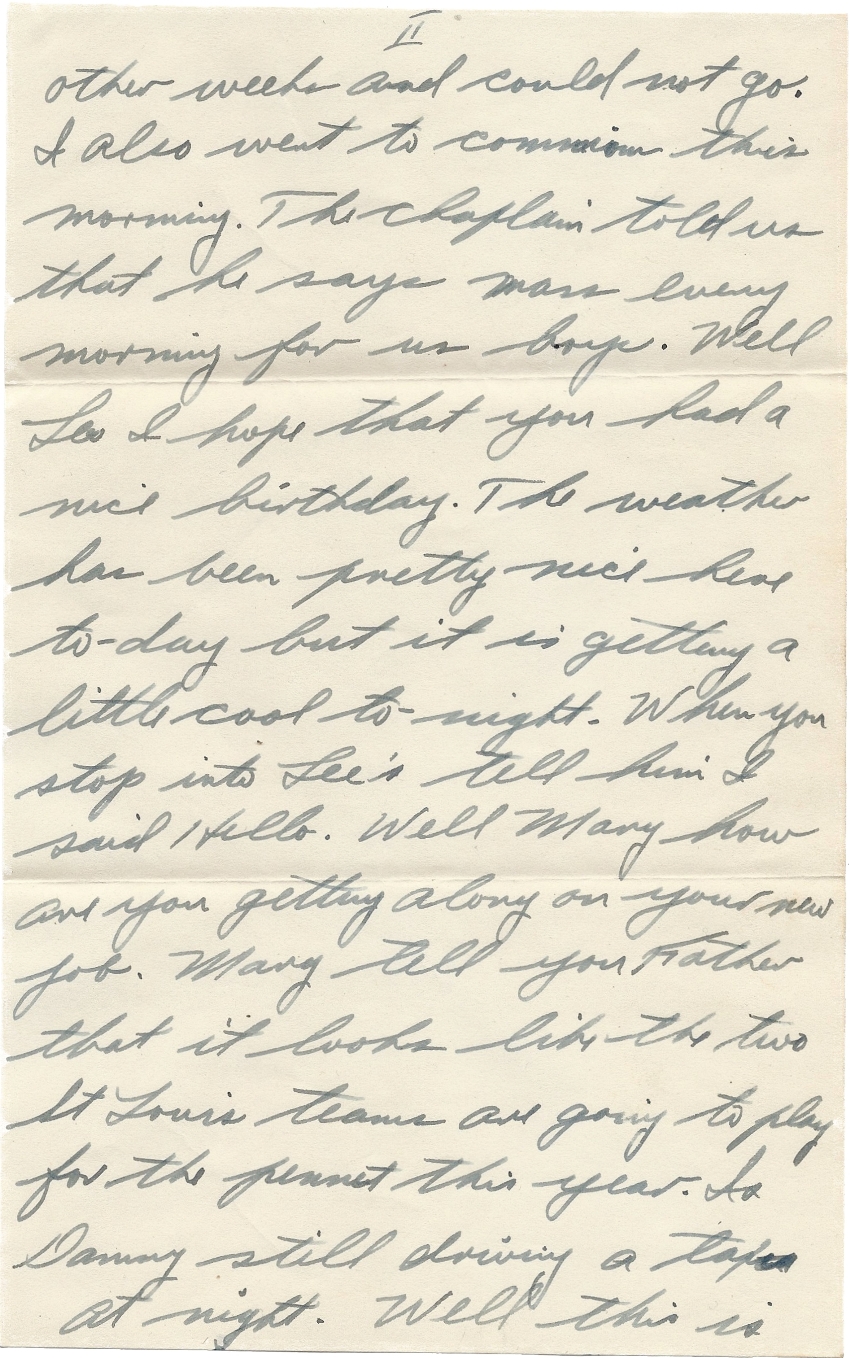 II
other weeks and could not go.
I also went to commion this
morning. The chaplain told us
that he says mass every
morning for us boys. Well
Leo I hope that you had a
nice birthday. The weather
has been pretty nice here
to-day but it is getting a
little cool to-night. When you
stop into Lee's tell him I
said Hello. Well Mary how
are you getting along on your new
job. Mary tell your Father
that it looks like the two
St Louis teams are going to play
for the pennet this year. Is
Danny still driving a
at night. Well this is